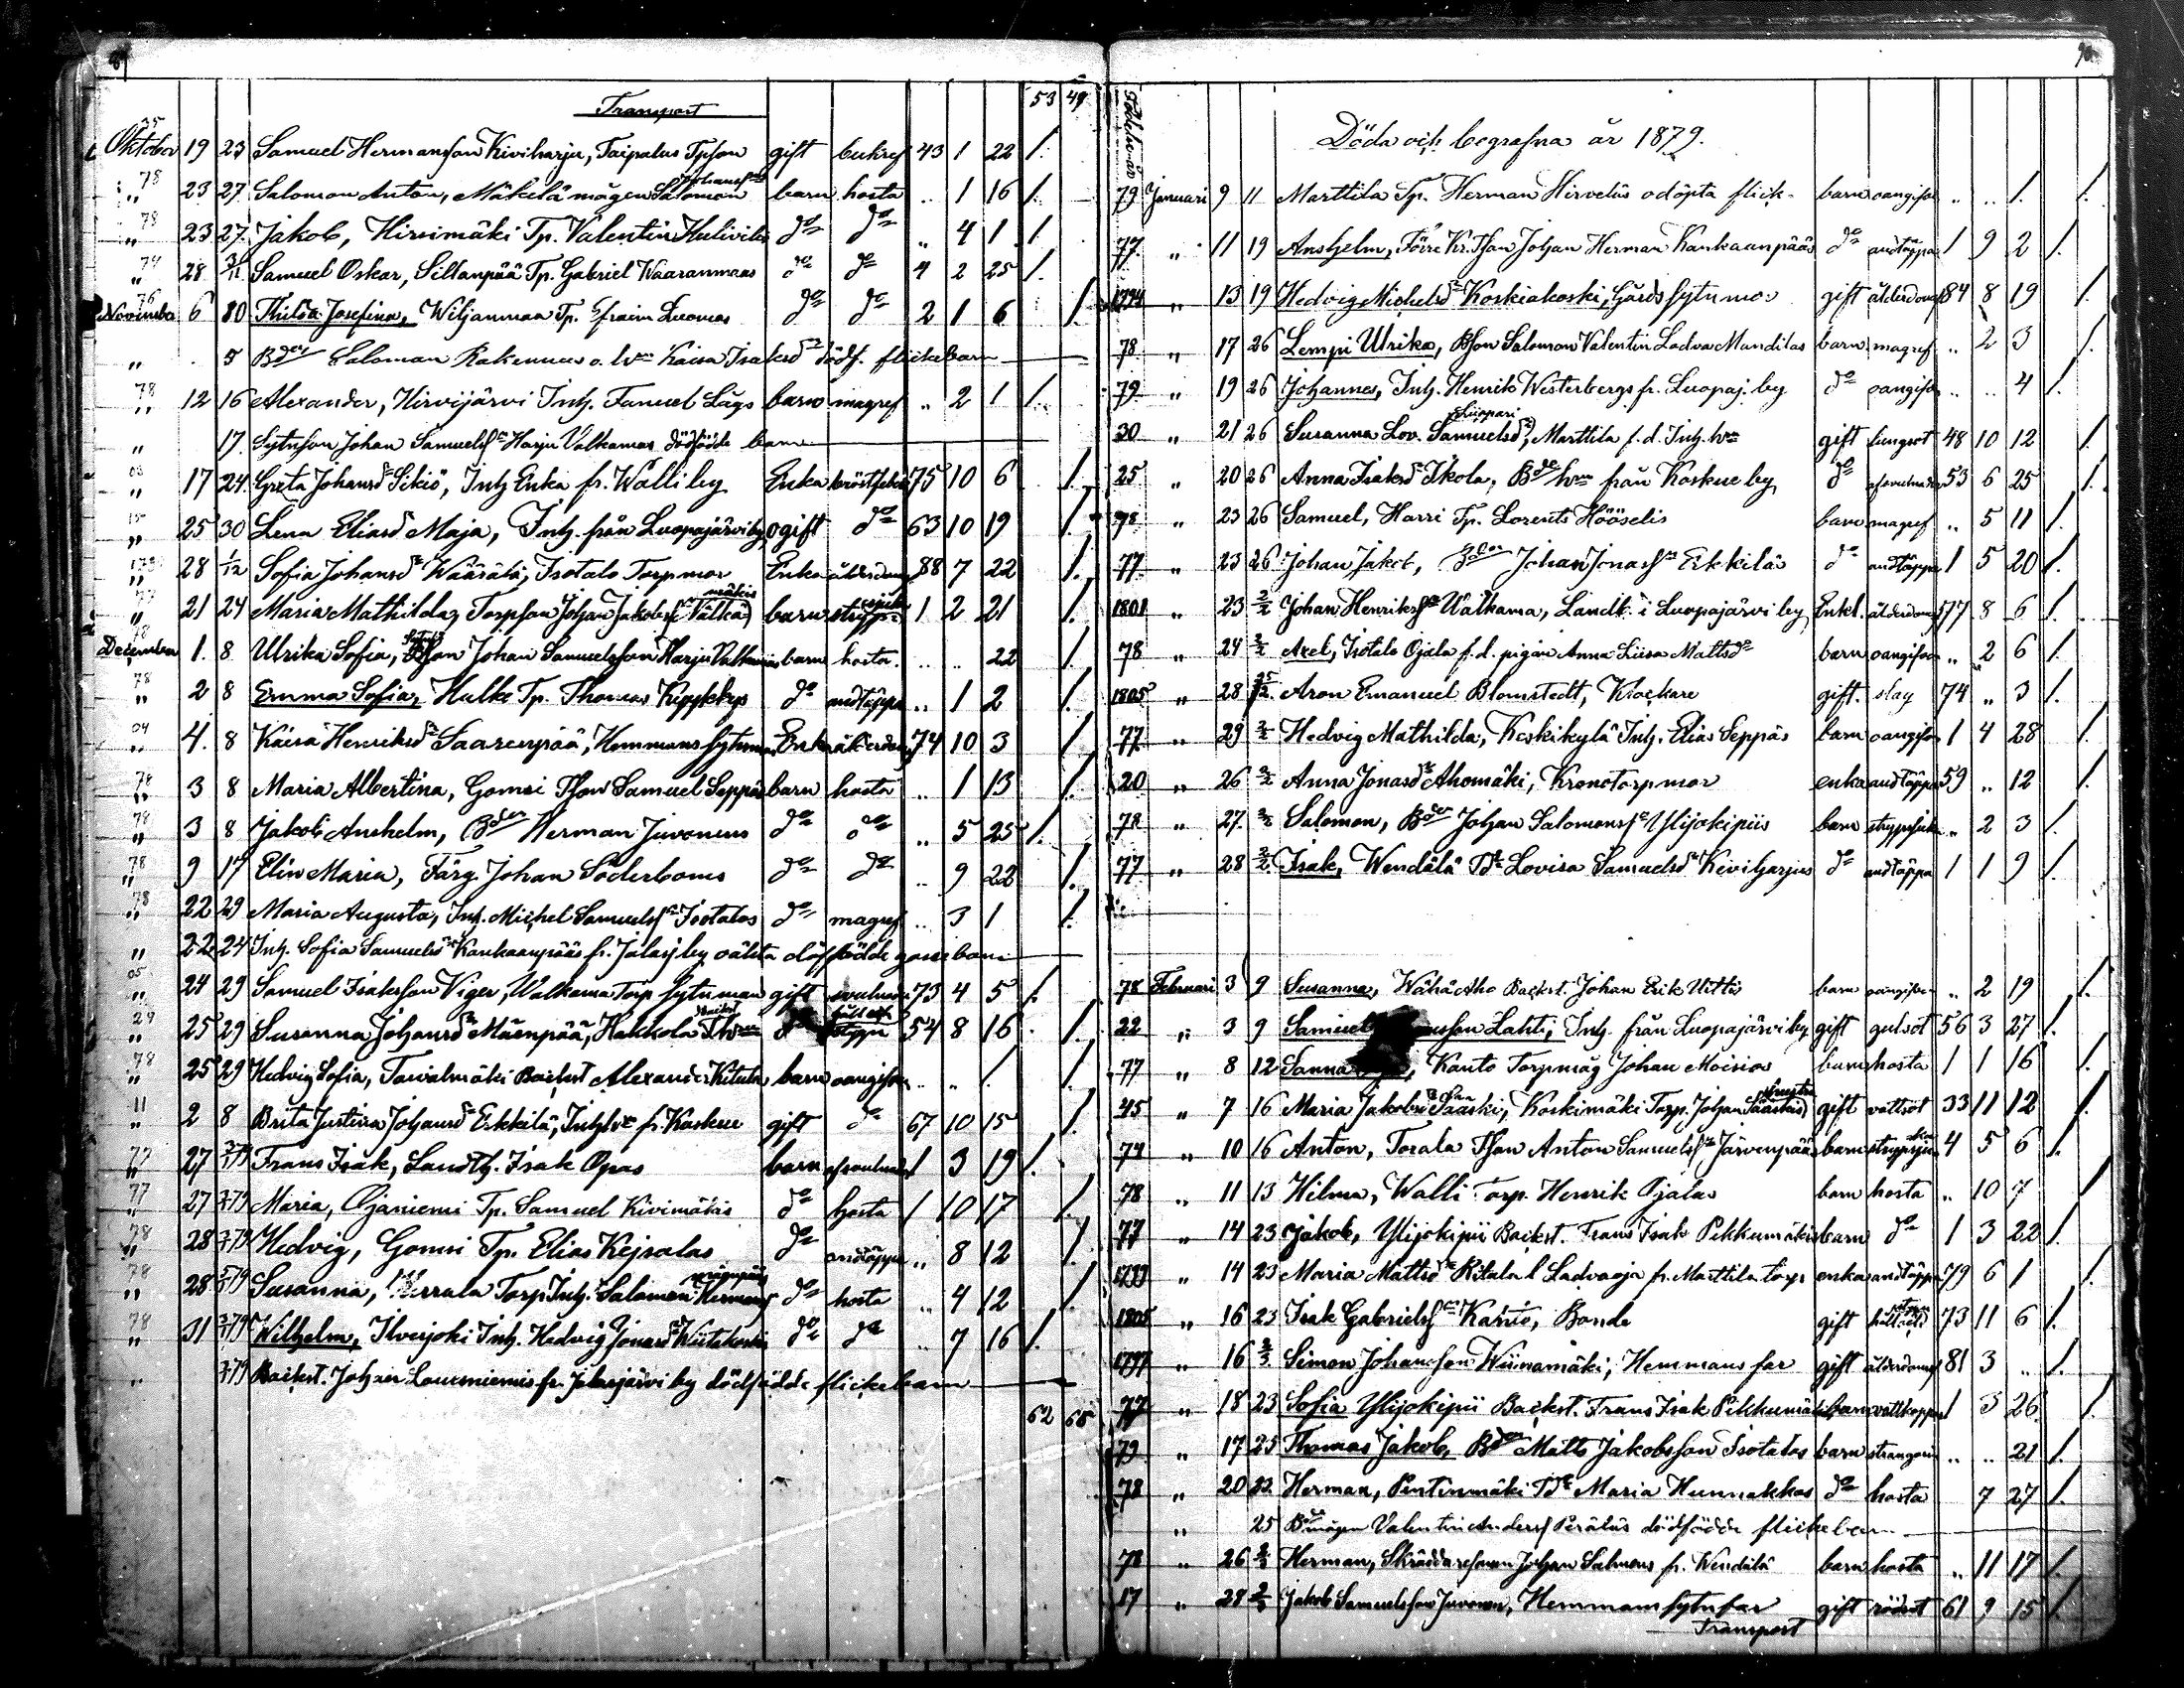 89
Transport 53 49
35 Oktober 19 23 Samuel Hermansson Kiviharju, Taipalus Tpson gift bukref 43 1 22 1.
78 " 23 27 Salomon Anton, Mäkelä mågen Salomon Johanss barn hosta .. 1 16 1.
78 " 23 27 Jakob, Hirvimäki Tp. Valentin do do " 4 1 1
74 " 28 3/11 Samuel Oskar, Sillanpää Tp. Gabriel Waaranmaas do do 4 2 25 1.
76 November 6 10 Hilda Josefina, Wiljanmaa Tp. Efraim Luomas do do 2 1 6 1.
" 5 Bden Salomon Rahennus o. hn Kaisa Isaksdr dödf. flickebarn
78 " 12 16 Alexander, Hirvijärvi Inh. Fanuel Lågs barn magref .. 2 1 1.
" 17. Sytnson Johan Samuelss Harju Valkamas dödfödde barn
03 " 17 24 Greta Johansdr Sikiö, Inh Enka fr. Walli by Enka 75 10 6 1.
15 " 25 30 Lena Eliasdr Maja, Inh. från Luopajärvi by ogift do 63 10 19 1.
" 28 1/12 Sofia Johansdr Wäärälä, Isotalo Torpmor Enka ålderdom 88 7 22 1.
77 " 21 24 Maria Mathilda, Torpson Johan Jakobss Välkämäkis barn strypsjuk 1 2 21 1.
78 December 1. 8 Ulrika Sofia, Johan Samuelsson Harju Valkamas barn hosta .. .. 22 1.
78 " 2 8 Emma Sofia, Hulke Tp. Thomas do andtäppa .. 1 2 1.
04 " 4. 8 Kaisa Henriksdr Saarenpää, Hemmans Enka ålderdom 74 10 3 1.
78 " 3 8 Maria Albertina, Gomsi Tson Samuel Seppäs barn hosta .. 1 13 1.
78 " 3 8 Jakob Anshelm, Bden Herman Juvonens do do .. 5 25 1.
78 " 9 17 Elin Maria, Färg. Johan Söderboms do do .. 9 22 1.
78 " 22 29 Maria Augusta, Inh. Michel Samuelss Isotalos do magref .. 3 1 1.
" 22 24 Inh. Sofia Samuelsdr Kankaanpääs fr. Jalasj by oäkta dödfödde gossebarn
05 " 24 29 Samuel Isaksson Viger, Walkama Torp sytnman gift 73 4 5 1.
24 " 25 29 Susanna Johansdr Mäenpää, Hakkola do 54 8 16 1.
78 " 25 29 Hedvig Sofia, Taivalmäki Backst Alexander barn oangifven .. .. 1 1
11 " 2 8 Brita Justina Johansdr Erkkilä, Inh hn fr. Koskue gift do 67 10 15 1.
77 " 27 2/1 79 Frans Isak, Landth. Isak Opas barn 1 3 19 1.
77 " 27 2/1 79 Maria, Ojaniemi Tp. Samuel Kivimäkis do hosta 1 10 17 1.
78 " 28 2/1 79 Hedvig, Gomsi Tp. Elias Kejsalas do andtäppa .. 8 12 1.
78 " 28 2/1 79 Susanna, Torp Inh. Salomon do hosta .. 4 12 1.
78 " 31 2/1 79 Wilhelm, Ilvesjoki Inh. Hedvig Jonasdr Wiitakoski do do .. 7 16 1.
" 2/1 79 Backst. Johan Louniemis fr. Jalasjärvi by dödfödde flickebarn
62 65
90
Födelse-år
Döda och begrafna år 1879.
79 Januari 9 11 Marttila Tp. Herman Hirvelüs odöpta flick- barn oangifven .. .. 1. 1.
77 " 11 19 Anshelm, Förre Kr. Tson Johan Herman Kankaanpääs do andtäppa 1 9 2 1.
1794 " 13 19 Hedvig Michelsdr Koskiakoski, Gårds sytnmor gift ålderdoms 84 8 19 1.
78 " 17 26 Lempi Ulrika, Bson Salomon Valentin Ladva Mandilas barn magref .. 2 3 1.
79 " 19 26 Johannes, Inh. Henrik Westerbergs fr. Luopaj. by do oangifven .. .. 4 1.
30 " 21 26 Susanna Lov. Samuelsdr Luopari, Marttila f.d. Inh. hn gift lungsot 48 10 12 1.
25 " 20 26 Anna Isaksdr Ikola, Bde hn från Koskue by do 53 6 25 1.
78 " 23 26 Samuel, Harri Tp. Lorents Hööselis barn magref .. 5 11 1.
77 " 23 26 Johan Jakob, Bden Johan Jonass Erkkiläs do andtäppa 1 5 20 1.
1801 " 23 2/2 Johan Henrikss Walkama, Landb. i Luopajärvi by Enkl. ålderdoms 77 8 6 1.
78 " 24 2/2 Axel, Isotalo Ojala f.d. pigan Anna Liisa Mattsdr barn oangifven .. 2 6 1.
1805 " 28 25/2 Aron Emanuel Blomstedt, Klockare gift. slag 74 .. 3 1.
77 " 29 2/2 Hedvig Mathilda, Keskikylä Inh. Elias Seppäs barn oangifven 1 4 28 1.
20 " 26 2/2 Anna Jonasdr Ahomäki, Kronotorpmor enka andtäppa 59 .. 12 1.
78 " 27. 2/2 Salomon, Bden Johan Salomonss Ylijokipiis barn strypsjuka .. 2 3 1.
77 " 28 2/2 Isak, Wendälä Tdr Lovisa Samuelsdr Kiviharjus do andtäppa 1 1 9 1.
78 Februari 3 9 Susanna, Wähä Aho Backst. Johan Erik barn oangifven .. 2 19 1.
22 " 3 9 Samuel Lahti, Inh. från Luopajärvi by gift gulsot 56 3 27 1.
77 " 8 12 Sanna, Kauto Torpmåg Johan Moisios barn hosta 1 1 16 1.
45 " 7 16 Maria Jakobsdr, Koskimäki Torp. Johan gift vattsot 33 11 12 1.
74 " 10 16 Anton, Torala Tson Anton Samuelss Järvenpääs barn strypsjuka 4 5 6 1.
78 " 11 13 Hilma, Walli Torp. Henrik Ojalas barn hosta .. 10 7 1.
77 " 14 23 Jakob, Ylijokipii Backst. Frans Isak Pikkumäkis barn do 1 3 22 1.
1799 " 14 23 Maria Mattsdr Ritala l. Ladvaoja fr. Marttila torp enka andtäppa 79 6 1 1.
1805 " 16 23 Isak Gabrielss Kauto, Bonde gift 73 11 6 1.
1797 " 16 2/3 Simon Johansson Wiinamäki, Hemmans far gift ålderdoms 81 3 .. 1.
77 " 18 23 Sofia Ylijokipii Backst. Frans Isak Pikkumäkis barn vattkoppor 1 3 26. 1.
79 " 17 25 Thomas Jakob, Bden Matts Jakobsson Isotalos barn .. .. 21 1.
78 " 20 Herman, Pentinmäki Tdr Maria Hunnakkos do hosta 7 27 1.
" 25 Bmågen Valentin Anderss Perälüs dödfödde flickebarn
78 " 26 2/3 Herman, Skräddaresonen Johan Salmens fr. Wendälä barn hosta .. 11 17 1.
17 " 28 2/3 Jakob Samuelsson Juvonen, Hemmans sytnfar gift rödsot 61 9 15 1.
Transport